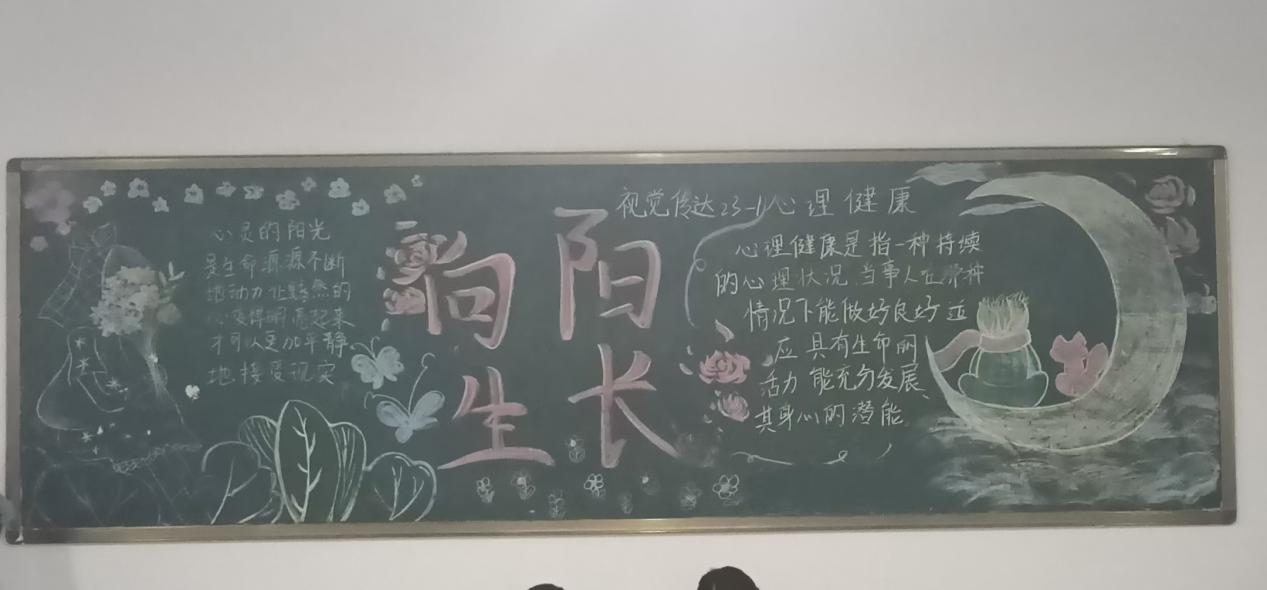 心灵的阳光
是生命源源不断
地动力让黯然的
心变得明亮起来
才可以更加平静
地接受现实
向阳
生长
视觉传达23-1心理健康
心理健康是指一种持续
的心理状况，当事人在那种
情况下能做好良好适
应具有生命的
活力能充分发展
其身心的潜能。